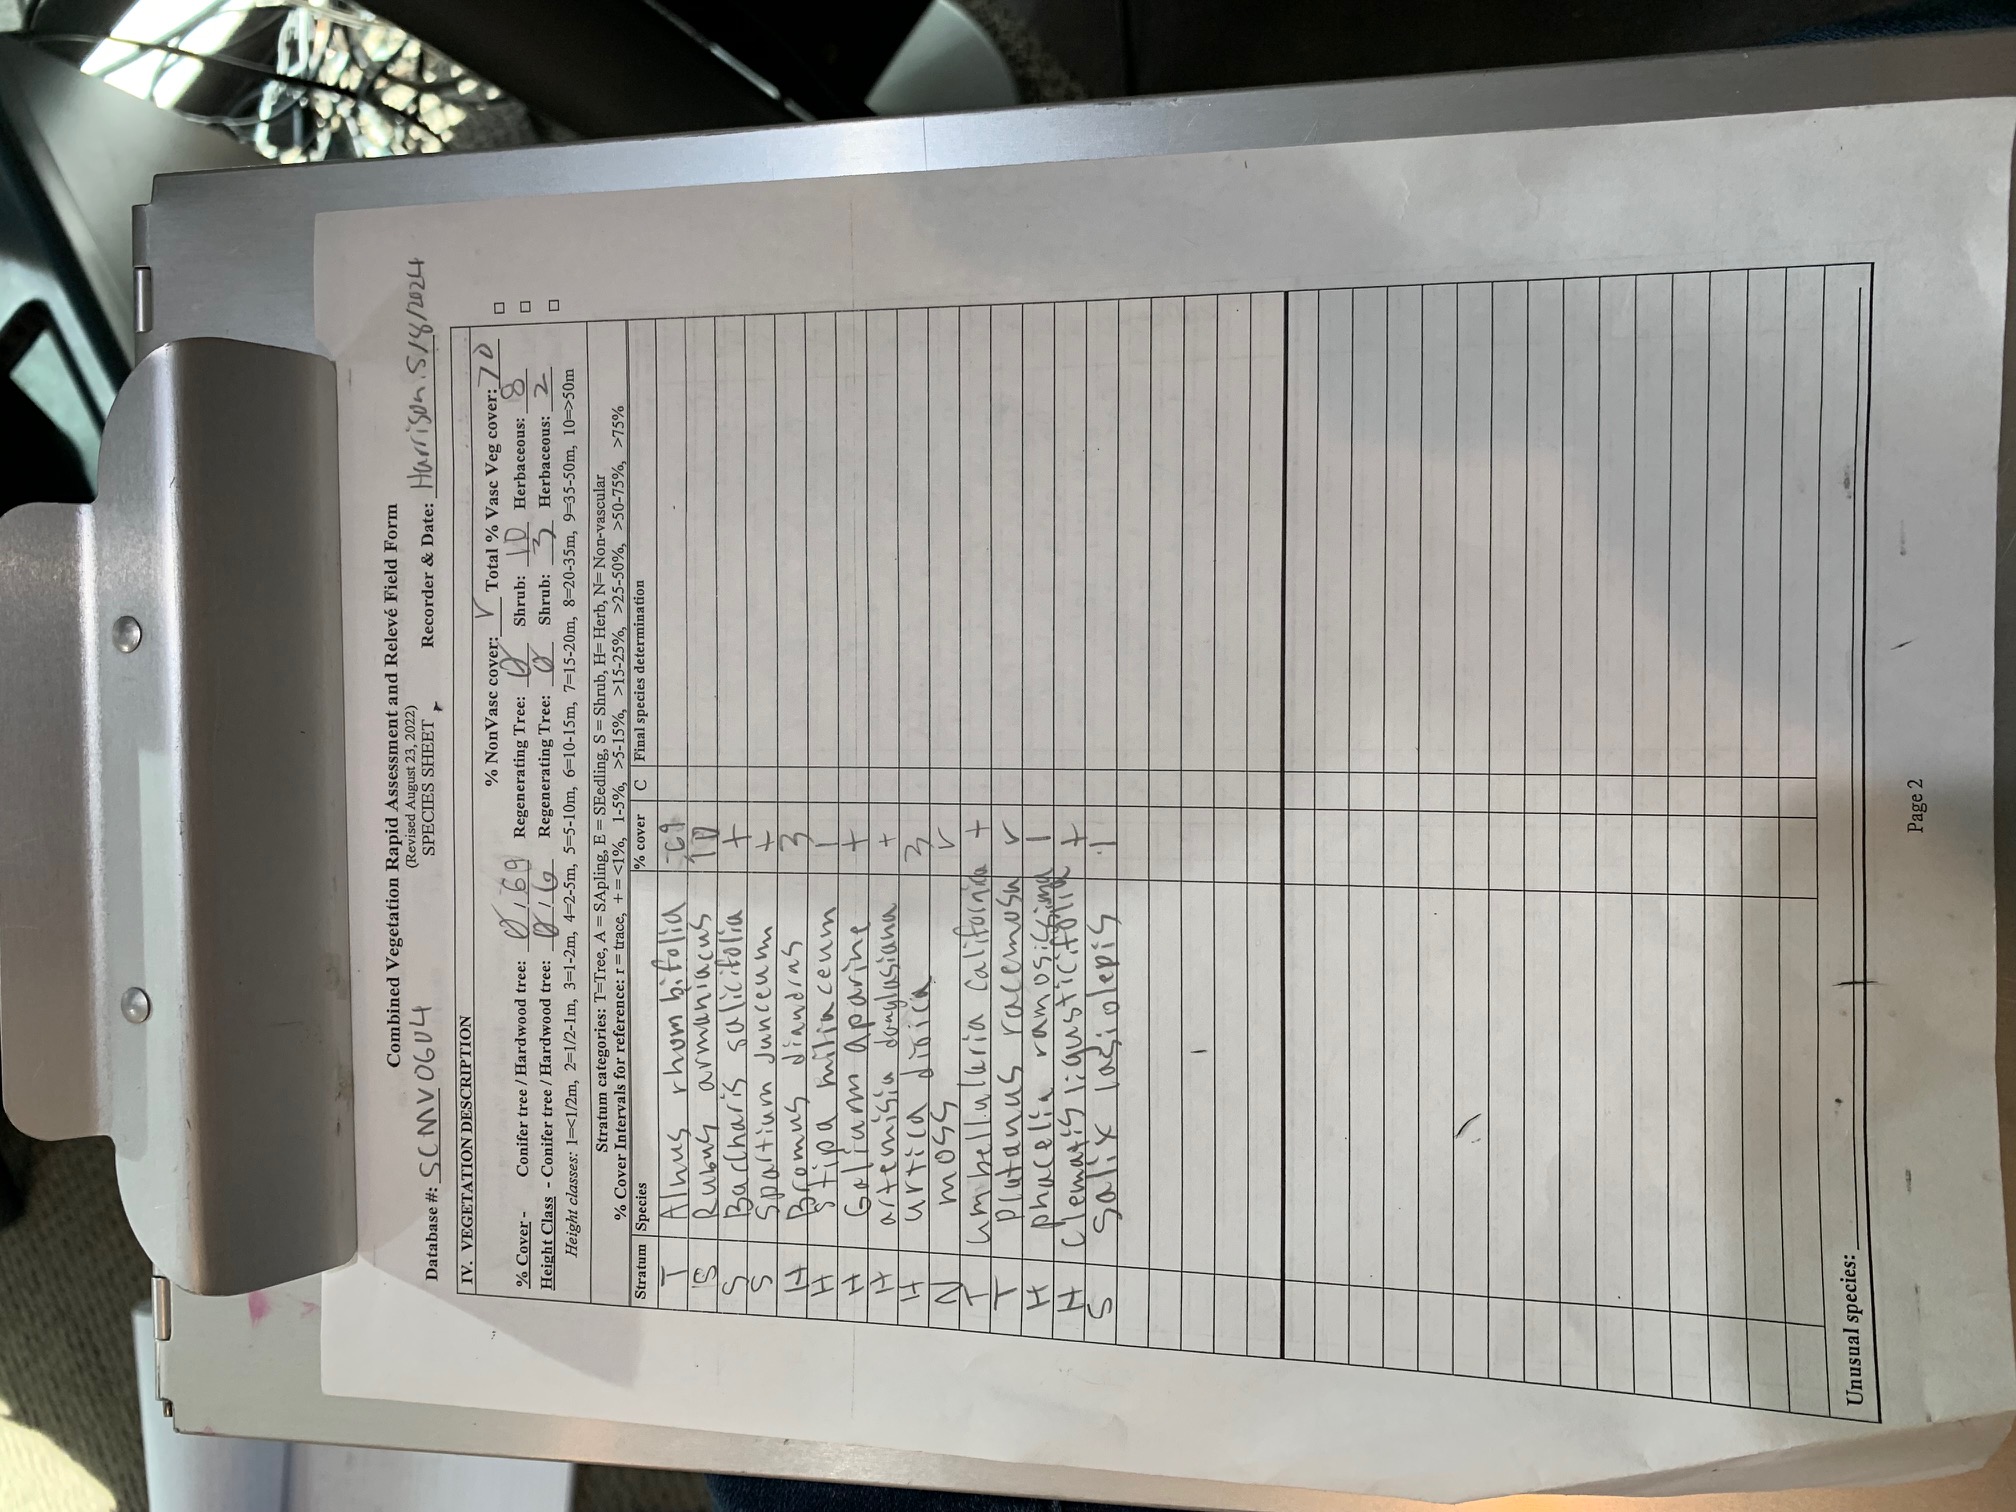 Combined Vegetation Rapid Assessment and Relevé Field Form
(Revised August 23, 2022)
Database #: SCMV0604 SPECIES SHEET Recorder & Date: Harrison 5/8/2024
IV. VEGETATION DESCRIPTION
% NonVasc cover: r Total % Vasc Veg cover: 70
% Cover - Conifer tree / Hardwood tree: 0 / 69 Regenerating Tree: 0 Shrub: 10 Herbaceous: 8
Height Class - Conifer tree / Hardwood tree: 0 / 6 Regenerating Tree: 0 Shrub: 3 Herbaceous: 2
Height classes: 1=<1/2m, 2=1/2-1m, 3=1-2m, 4=2-5m, 5=5-10m, 6=10-15m, 7=15-20m, 8=20-35m, 9=35-50m, 10=>50m
Stratum categories: T=Tree, A = SApling, E = SEedling, S = Shrub, H= Herb, N= Non-vascular
% Cover Intervals for reference: r = trace, + = <1%, 1-5%, >5-15%, >15-25%, >25-50%, >50-75%, >75%
Stratum Species % cover C Final species determination
T Alnus rhombifolia 69
S Rubus armaniacus 10
S Baccharis salicifolia +
S Spartium Junceum +
H Bromus diandrus 3
H Stipa miliaceum 1
H Galium aparine +
H artemisia douglasiana +
H urtica dioica 3
N moss r
T umbellularia californica +
T platanus racemosa r
H phacelia ramosissima 1
H Clematis ligusticifolia +
S Salix lasiolepis 1
Unusual species:
Page 2